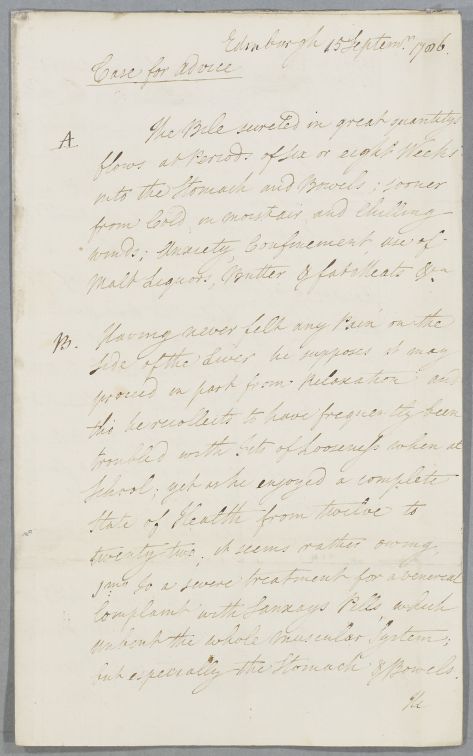 Edinburgh 15 Septemr. 1786.
Case for advice
A The Bile secreted in great quantitys
flows at Periods of six or eight Weeks
into the Stomach and Bowels; sooner
from Cold in moist air and Chilling
winds; Anxiety, Confinement use of
Malt Liquors, Butter & fat Meats &ca
B. Having never felt any Pain on the
side of the Liver he supposes it may
proceed in part from Relaxation and
tho' he recollects to have frequently been
troubled with fits of Looseness when at
School; yet as he enjoyed a complete
State of Health from twelve to
twenty two; it seems rather owing,
1mo. to a severe treatment for a venereal
Complaint with Pills which
unbent the whole muscular System;
but especially the Stomach & Bowels.
He